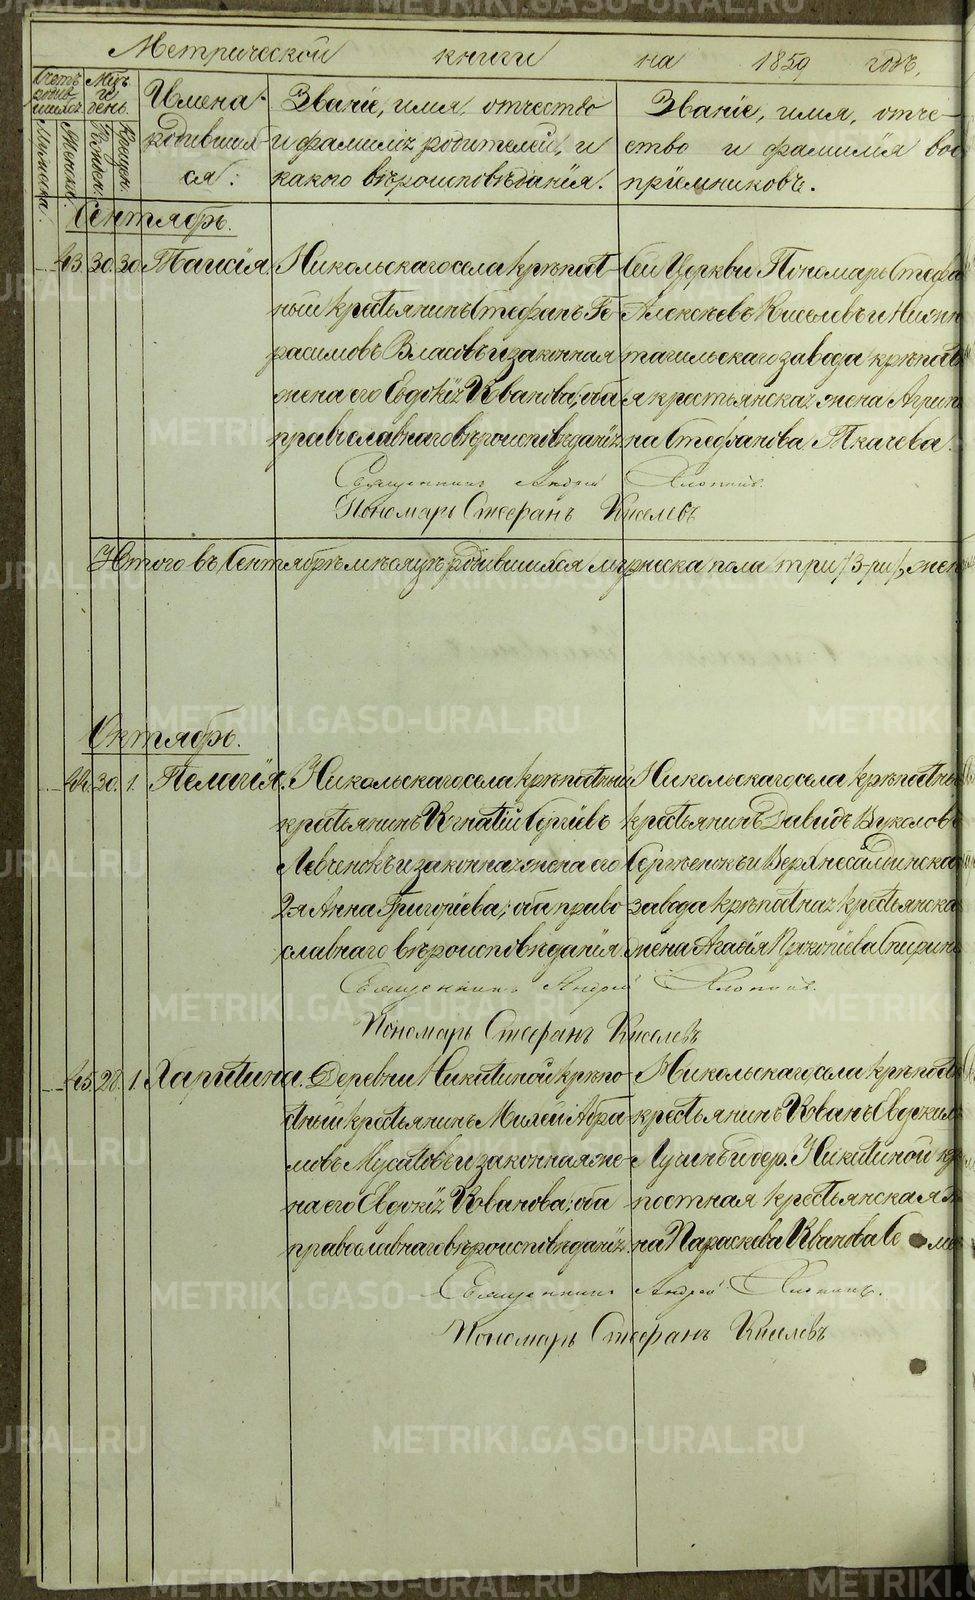 Метрической книги на 1859 годъ,
Счетъ родившихся.
Мѣц. и день.
Имена родившихся:
Званіе, имя, отчество и фамилія родителей, и какого вѣроисповѣданія.
Званіе, имя, отчество и фамилія воспріемниковъ.
Мужеска.
Женска.
Рожден.
Крещен.
Сентябрь.
43. 30. 30. Таисія.
Никольскаго села крѣпост-
ный крестьянинъ Стефанъ Ге-
расимовъ Власовъ и законная
жена его Евдокія Иванова; оба
православнаго вѣроисповѣданія.
Сей Церкви Пономарь Стефа
Алексѣевъ Киселевъ и Нижн
тагильскаго завода крѣпост
я крестьянская жена Агрип
на Стефанова Ткачева.
Священникъ Андрей Хлопинъ.
Пономарь Стефанъ Киселевъ
Итого въ Сентябрѣ мѣсяцѣ родившихся мужеска пола три /3-ри/, жен
Октябрь.
44. 30. 1. Пелагія.
Никольскаго села крѣпостный
крестьянинъ Игнатій Сергѣевъ
Левченокъ и законная жена его
2я Анна Григоріева; оба право-
славнаго вѣроисповѣданія.
Никольскаго села крѣпостны
крестьянинъ Давидъ Вуколовъ
Сергѣенокъ и Верхнесалдинска
завода крѣпостная крестьянска
жена Агафія Прокопіева Спирин
Священникъ Андрей Хлопинъ.
Пономарь Стефанъ Киселевъ
45. 28. 1. Харитина.
Деревни Никитиной крѣпо-
стный крестьянинъ Милей Абра-
мовъ Мусатовъ и законная же-
на его Евдокія Иванова; оба
православнаго вѣроисповѣданія.
Никольскаго села крѣпост
крестьянинъ Иванъ Евдоким
Лучинъ и дер. Никитиной кр
постная крестьянская
на Параскева Иванова
Священникъ Андрей Хлопинъ.
Пономарь Стефанъ Киселевъ
METRIKI.GASO-URAL.RU